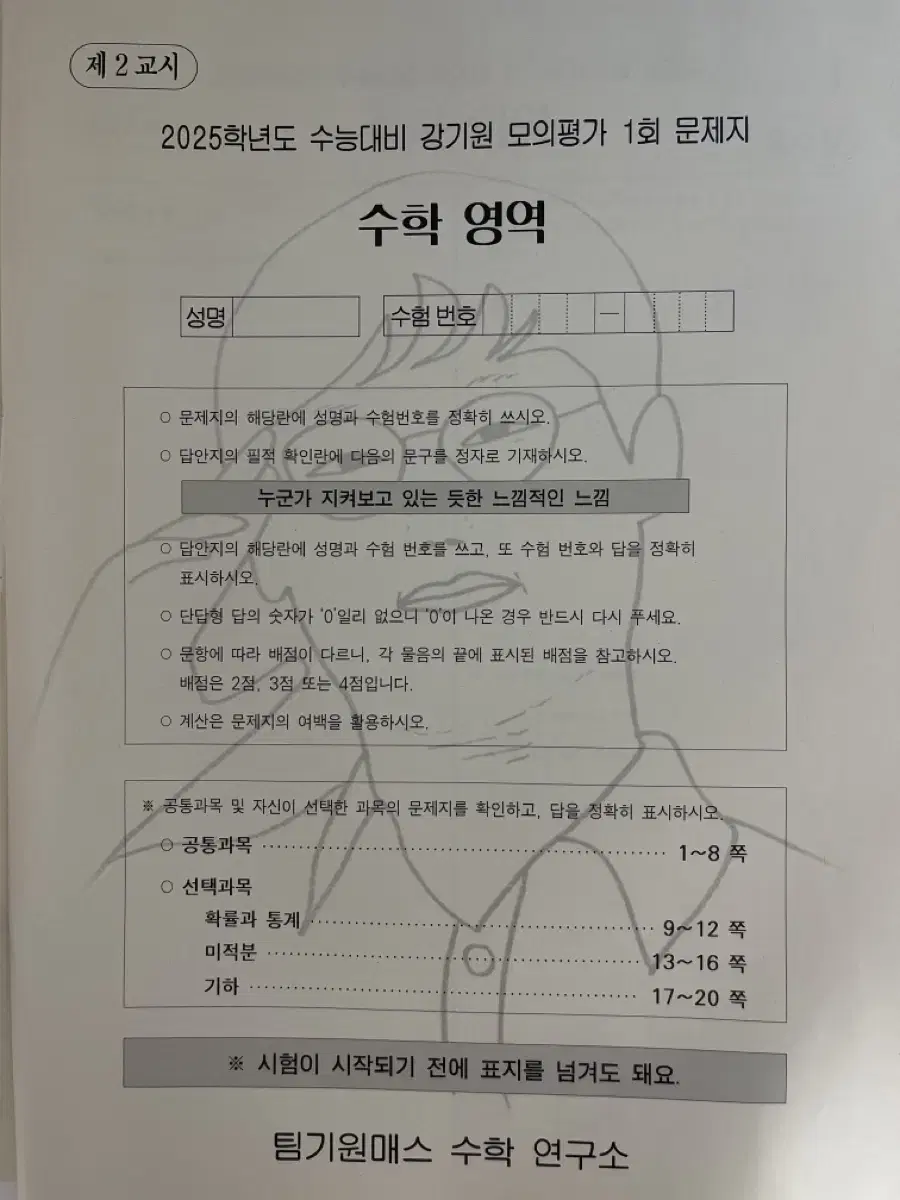 제 2 교시
2025학년도 수능대비 강기원 모의평가 1회 문제지
수학 영역
성명
수험 번호 —
○ 문제지의 해당란에 성명과 수험번호를 정확히 쓰시오.
○ 답안지의 필적 확인란에 다음의 문구를 정자로 기재하시오.
누군가 지켜보고 있는 듯한 느낌적인 느낌
○ 답안지의 해당란에 성명과 수험 번호를 쓰고, 또 수험 번호와 답을 정확히
표시하시오.
○ 단답형 답의 숫자가 '0'일리 없으니 '0'이 나온 경우 반드시 다시 푸세요.
○ 문항에 따라 배점이 다르니, 각 물음의 끝에 표시된 배점을 참고하시오.
배점은 2점, 3점 또는 4점입니다.
○ 계산은 문제지의 여백을 활용하시오.
※ 공통과목 및 자신이 선택한 과목의 문제지를 확인하고, 답을 정확히 표시하시오.
○ 공통과목 ·················· 1~8 쪽
○ 선택과목
확률과 통계 ·················· 9~12 쪽
미적분 ·················· 13~16 쪽
기하 ·················· 17~20 쪽
※ 시험이 시작되기 전에 표지를 넘겨도 돼요.
팀기원매스 수학 연구소